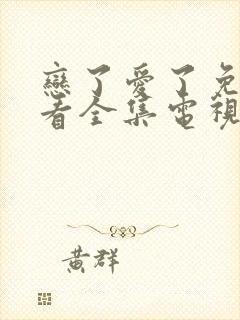 戀了愛了免
看全集電視
黃群